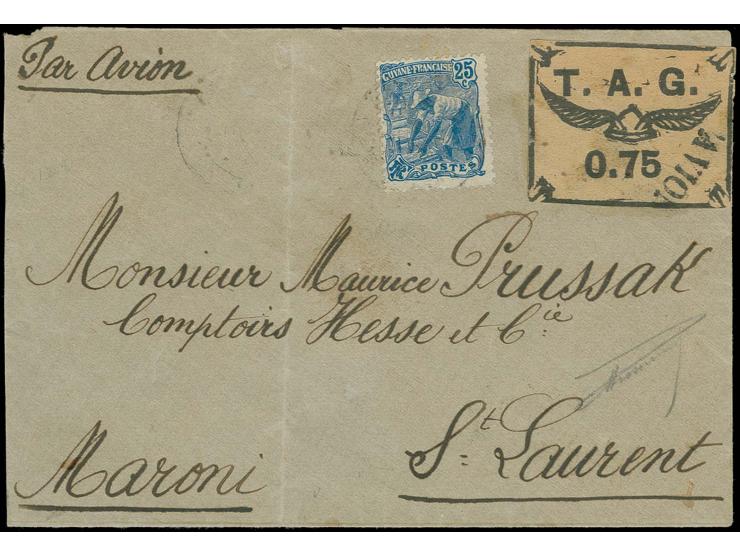 Par Avion
GUYANE-FRANÇAISE 25
POSTES
T. A. G.
0.75
AVION
Monsieur Maurice Prussak
Comptoirs Hesse et Cie
St Laurent
Maroni